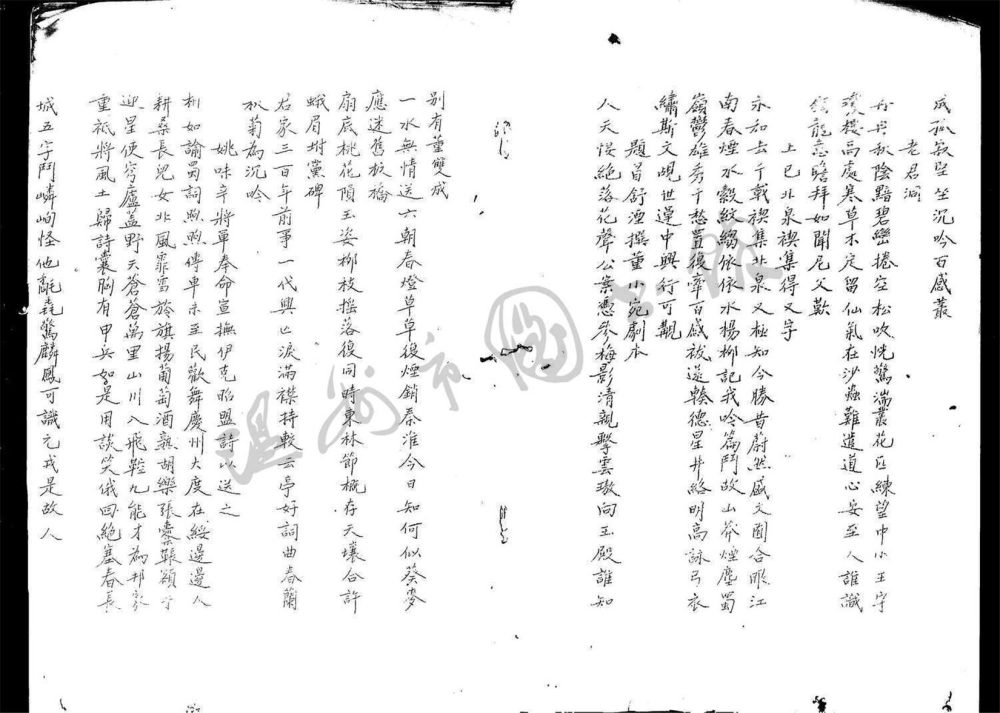 成孤𣣱坐沉吟百感叢
老君洞
丹井秋陰黯碧巒捲空松吹恍驚湍叢花匹練望中小玉宇
瓊樓高處寒草木定留仙氣在沙蟲難遣道心安至人誰識
猶龍意瞻拜如聞尼父歎
上巳北泉禊集得又字
永和去千載禊集北泉又極知今勝昔蔚然盛文囿合眼江
南春煙水縠紋縐依依水楊柳記我吟篇鬥故山莽煙塵蜀
嶺鬱雄秀千愁置復牽百感祓逆輳德星井絡明高詠弓衣
繡斯文覘世運中興行可覯
題曾舒湮撰董小宛劇本
人天悵絕落花聲公案憑參梅影清親擊雲璈向玉殿誰知
別有董雙成
一水無情送六朝春燈草草後煙銷秦淮今日知何似葵麥
應迷舊板橋
扇底桃花隕玉姿柳枝搖落復同時東林節概存天壤合許
蛾眉坿黨碑
君家三百年前事一代興亡淚滿襟持較云亭好詞曲春蘭
秋菊為沉吟
姚味辛將軍奉命宣撫伊克昭盟詩以送之
相如諭蜀詞煦煦傳車未至民歡舞慶州大度在綏邊邊人
耕桑長兒女北風霏雪旍旗揚葡萄酒熟胡樂張橐鞬潁
迎星使穹廬蓋野天蒼蒼萬里山川入飛鞚九能才為邦家
重祗將風土歸詩囊胸有甲兵如是用談笑俄回絕塞春長
城五字鬥嶙峋怪他氈毳驚麟鳳可識元戎是故人